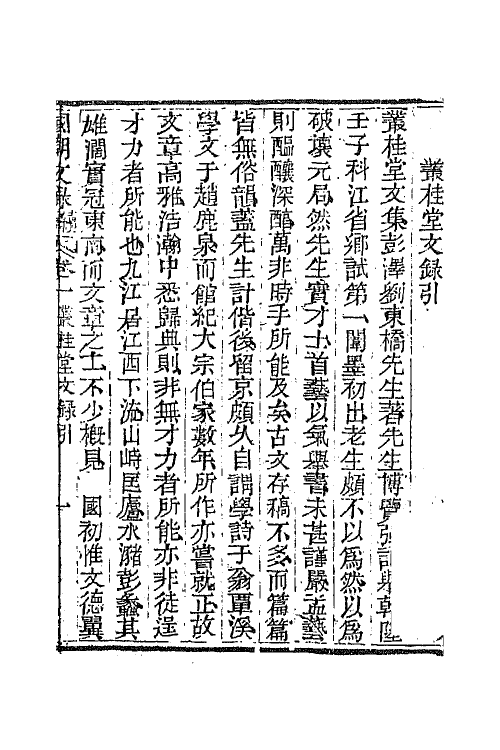 叢桂堂文錄引
叢桂堂文集彭澤劉東橋先生著先生博覽强記舉乾隆
壬子科江省鄉試第一闈墨初出老生頗不以爲然以爲
破壞元局然先生實才士首藝以氣舉書未甚謹嚴孟藝
則醞釀深醇萬非時手所能及矣古文存稿不多而篇篇
皆無俗韻蓋先生計偕後留京頗久自謂學詩于翁覃溪
學文于趙鹿泉而館紀大宗伯家數年所作亦嘗就正故
文章高雅浩瀚中悉歸典則非無才力者所能亦非徒逞
才力者所能也九江居江西下流山峙匡廬水瀦彭蠡其
雄濶實冠東南而文章之士不少槪見　國初惟文德翼
國朝文錄續編　卷一　叢桂堂文錄引　一